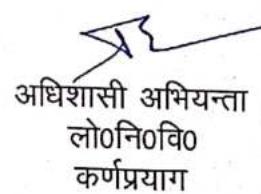 अधिशासी अभियन्ता
लो0नि0वि0
कर्णप्रयाग